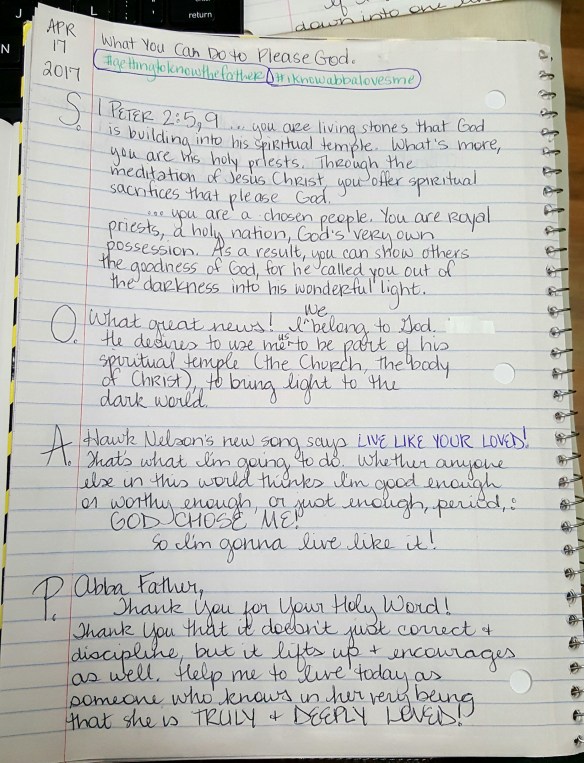 J
N
return
If
down into one
APR
17
2017
What You Can Do to Please God.
#gettingtoknowthefather #iknowabbalovesme
S. I PETER 2:5,9 ... you are living stones that God
is building into his spiritual temple. What's more,
you are his holy priests. Through the
meditation of Jesus Christ, you offer spiritual
sacrifices that please God.
... you are a chosen people. You are royal
priests, a holy nation, God's very own
possession. As a result, you can show others
the goodness of God, for he called you out of
the darkness into his wonderful light.
We
O. What great news! I ^ belong to God.
us
He desires to use me ^ to be part of his
spiritual temple (the Church, the body
of Christ), to bring light to the
dark world.
A. Hawk Nelson's new song says LIVE LIKE YOUR LOVED!
That's what I'm going to do. Whether anyone
else in this world thinks I'm good enough
or worthy enough, or just enough, period,:
GOD CHOSE ME!
So I'm gonna live like it!
P. Abba Father,
Thank You for Your Holy Word!
Thank You that it doesn't just correct +
discipline, but it lifts up + encourages
as well. Help me to live today as
someone who knows in her very being
that she is TRULY + DEEPLY LOVED!